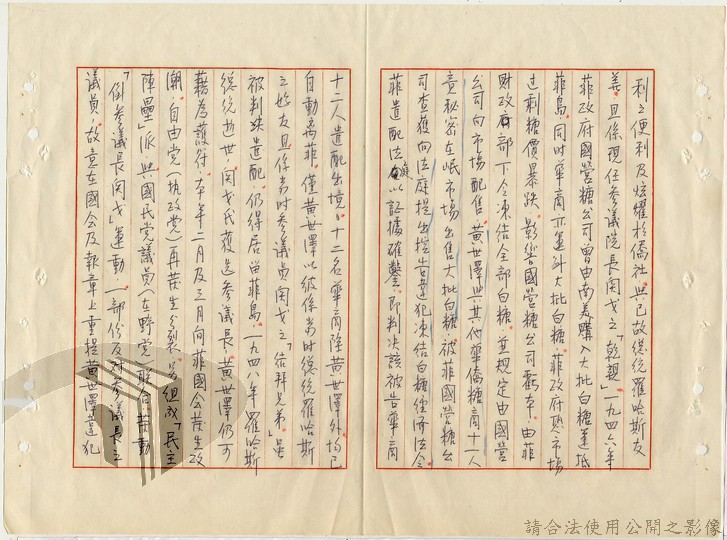 利之便利及炫耀於僑社與已故總統羅哈斯友
善,且係現任參議院長閔戈之「乾親」一九四六年
菲政府國營糖公司曾由南美購入大批白糖運抵
菲島,同時華商亦運到大批白糖,菲政府恐市場
过剩糖價暴跌,影響國營糖公司虧本,由菲
財政部下令凍结全部白糖,並規定由國营
公司向市場配售,黄世澤與其他華僑糖商十一人
竟秘密在岷市場出售大批白糖被菲國营糖公
司查獲向法庭提出控告違犯凍结白糖經濟法令
菲遣配法庭以証據確鑿,即判决該被告華商
十二人遣配出境。十二名華商除黄世澤外均已
自動离菲,僅黄世澤以彼係当時總統羅哈斯
之好友且係当時参議員閔戈之「结拜兄弟」,虽
被判決遣配,仍得居留菲島,一九四八年羅哈斯
總统逝世,閔戈氏獲选参議長,黄世澤仍可
藉為護符,本年一月及三月间菲國会发生政
潮,自由党(執政党)再发生分裂,另组成「民主
陣壘」派與國民党議員(在野党)联合,发動
「倒参議長閔戈」運動,一部份反对参議長之
議員,故意在國会及報章上重提黄世澤違犯
請合法使用公開之影像